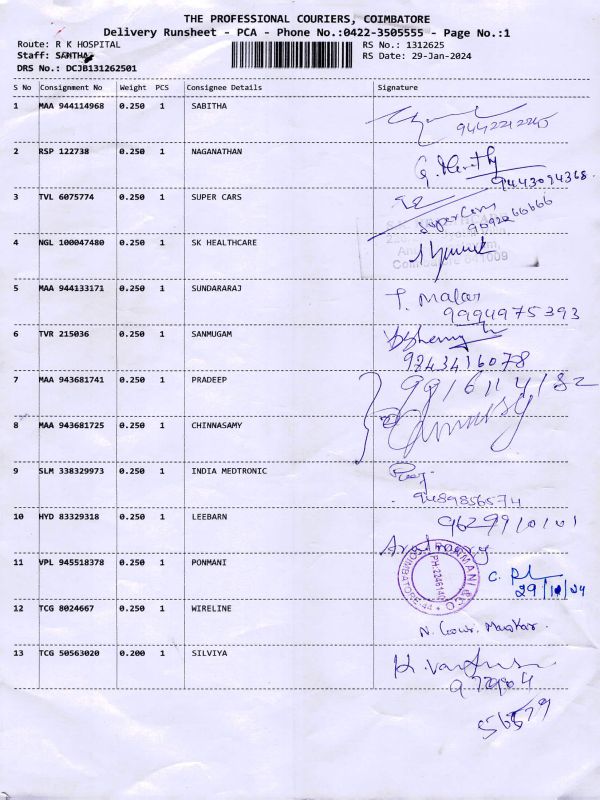 THE PROFESSIONAL COURIERS, COIMBATORE
Delivery Runsheet - PCA - Phone No.:0422-3505555 - Page No.:1
Route: R K HOSPITAL RS No.: 1312625
Staff: SABITHA RS Date: 29-Jan-2024
DRS No.: DCJB131262501
S No Consignment No Weight PCS Consignee Details Signature
1 MAA 944114968 0.250 1 SABITHA
9442212245
2 RSP 122738 0.250 1 NAGANATHAN
9443094368.
3 TVL 6075774 0.250 1 SUPER CARS
Super Cars
9092266666
4 NGL 100047480 0.250 1 SK HEALTHCARE
641009
5 MAA 944133171 0.250 1 SUNDARARAJ T. Malar
9994975393
6 TVR 215036 0.250 1 SANMUGAM
9243416078
7 MAA 943681741 0.250 1 PRADEEP 9916114182
8 MAA 943681725 0.250 1 CHINNASAMY
9 SLM 338329973 0.250 1 INDIA MEDTRONIC
9489856574
10 HYD 83329318 0.250 1 LEEBARN 9629910101
11 VPL 945518378 0.250 1 PONMANI
PONMANI & CO
PH:2246140
COIMBATORE-44
12 TCG 8024667 0.250 1 WIRELINE
13 TCG 50563020 0.200 1 SILVIYA